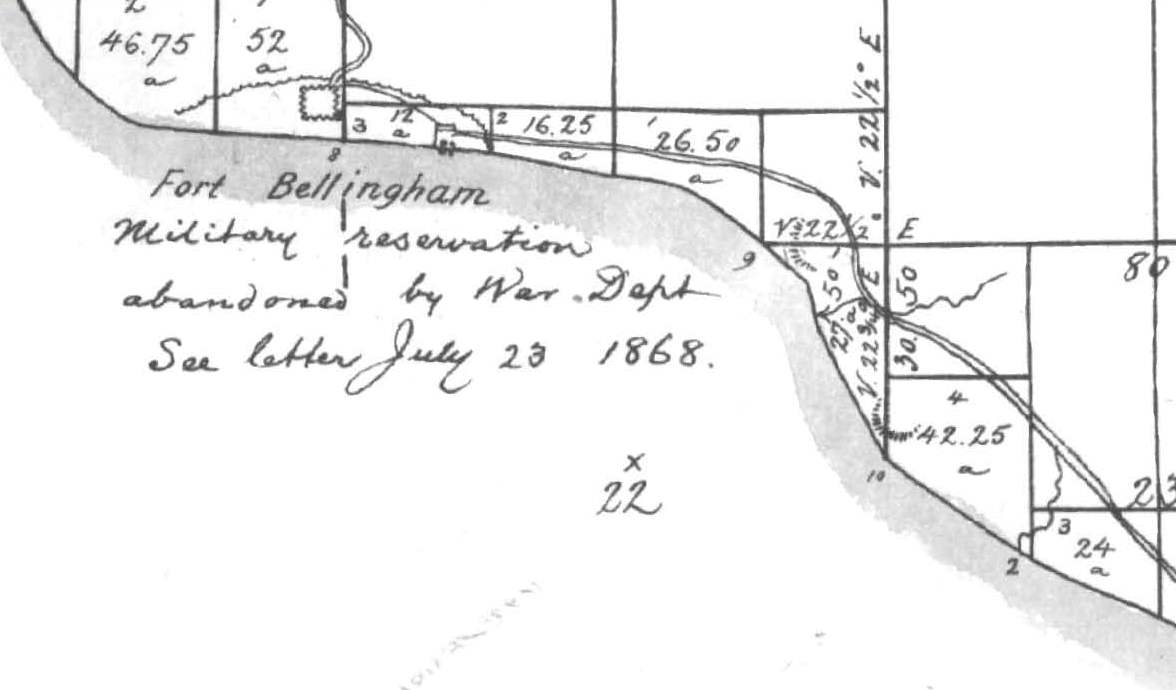 2
46.75
a
52
a
3
12
a
2
16.25
a
1
26.50
a
V. 22 1/2° E
8
Fort Bellingham
Military reservation
abandoned by War. Dept
See letter July 23 1868.
V 22 1/2° E
9
80
27.50
a
V. 22 3/4° E
30.50
4
42.25
a
10
x
22
23
3
24
a
2